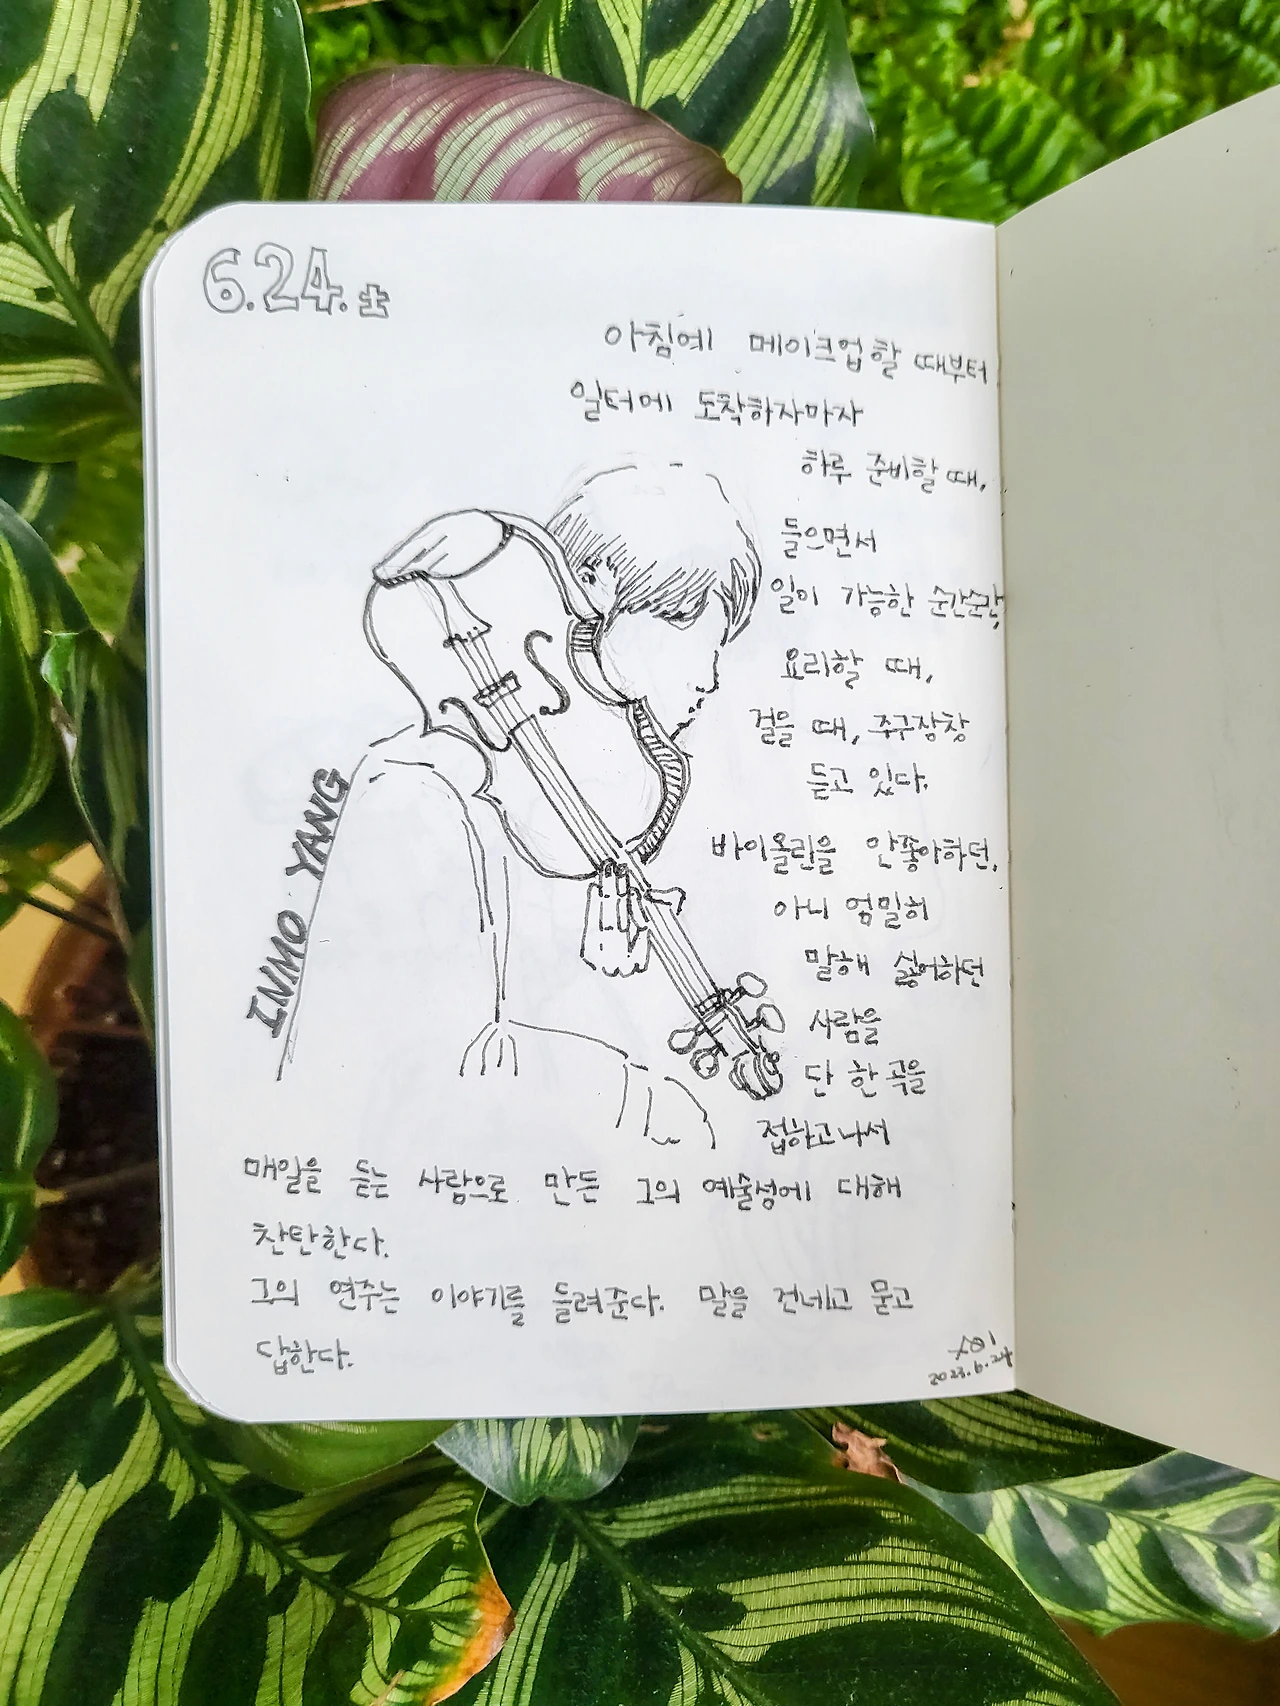 6.24.土
아침에 메이크업할 때부터
일터에 도착하자마자
하루 준비할 때,
들으면서
일이 가능한 순간순간,
요리할 때,
걸을 때, 주구장창
듣고 있다.
INMO YANG
바이올린을 안좋아하던,
아니 엄밀히
말해 싫어하던
사람을
단 한 곡을
접하고나서
매일을 듣는 사람으로 만든 그의 예술성에 대해
찬탄한다.
그의 연주는 이야기를 들려준다. 말을 건네고 묻고
답한다.
2023.6.24